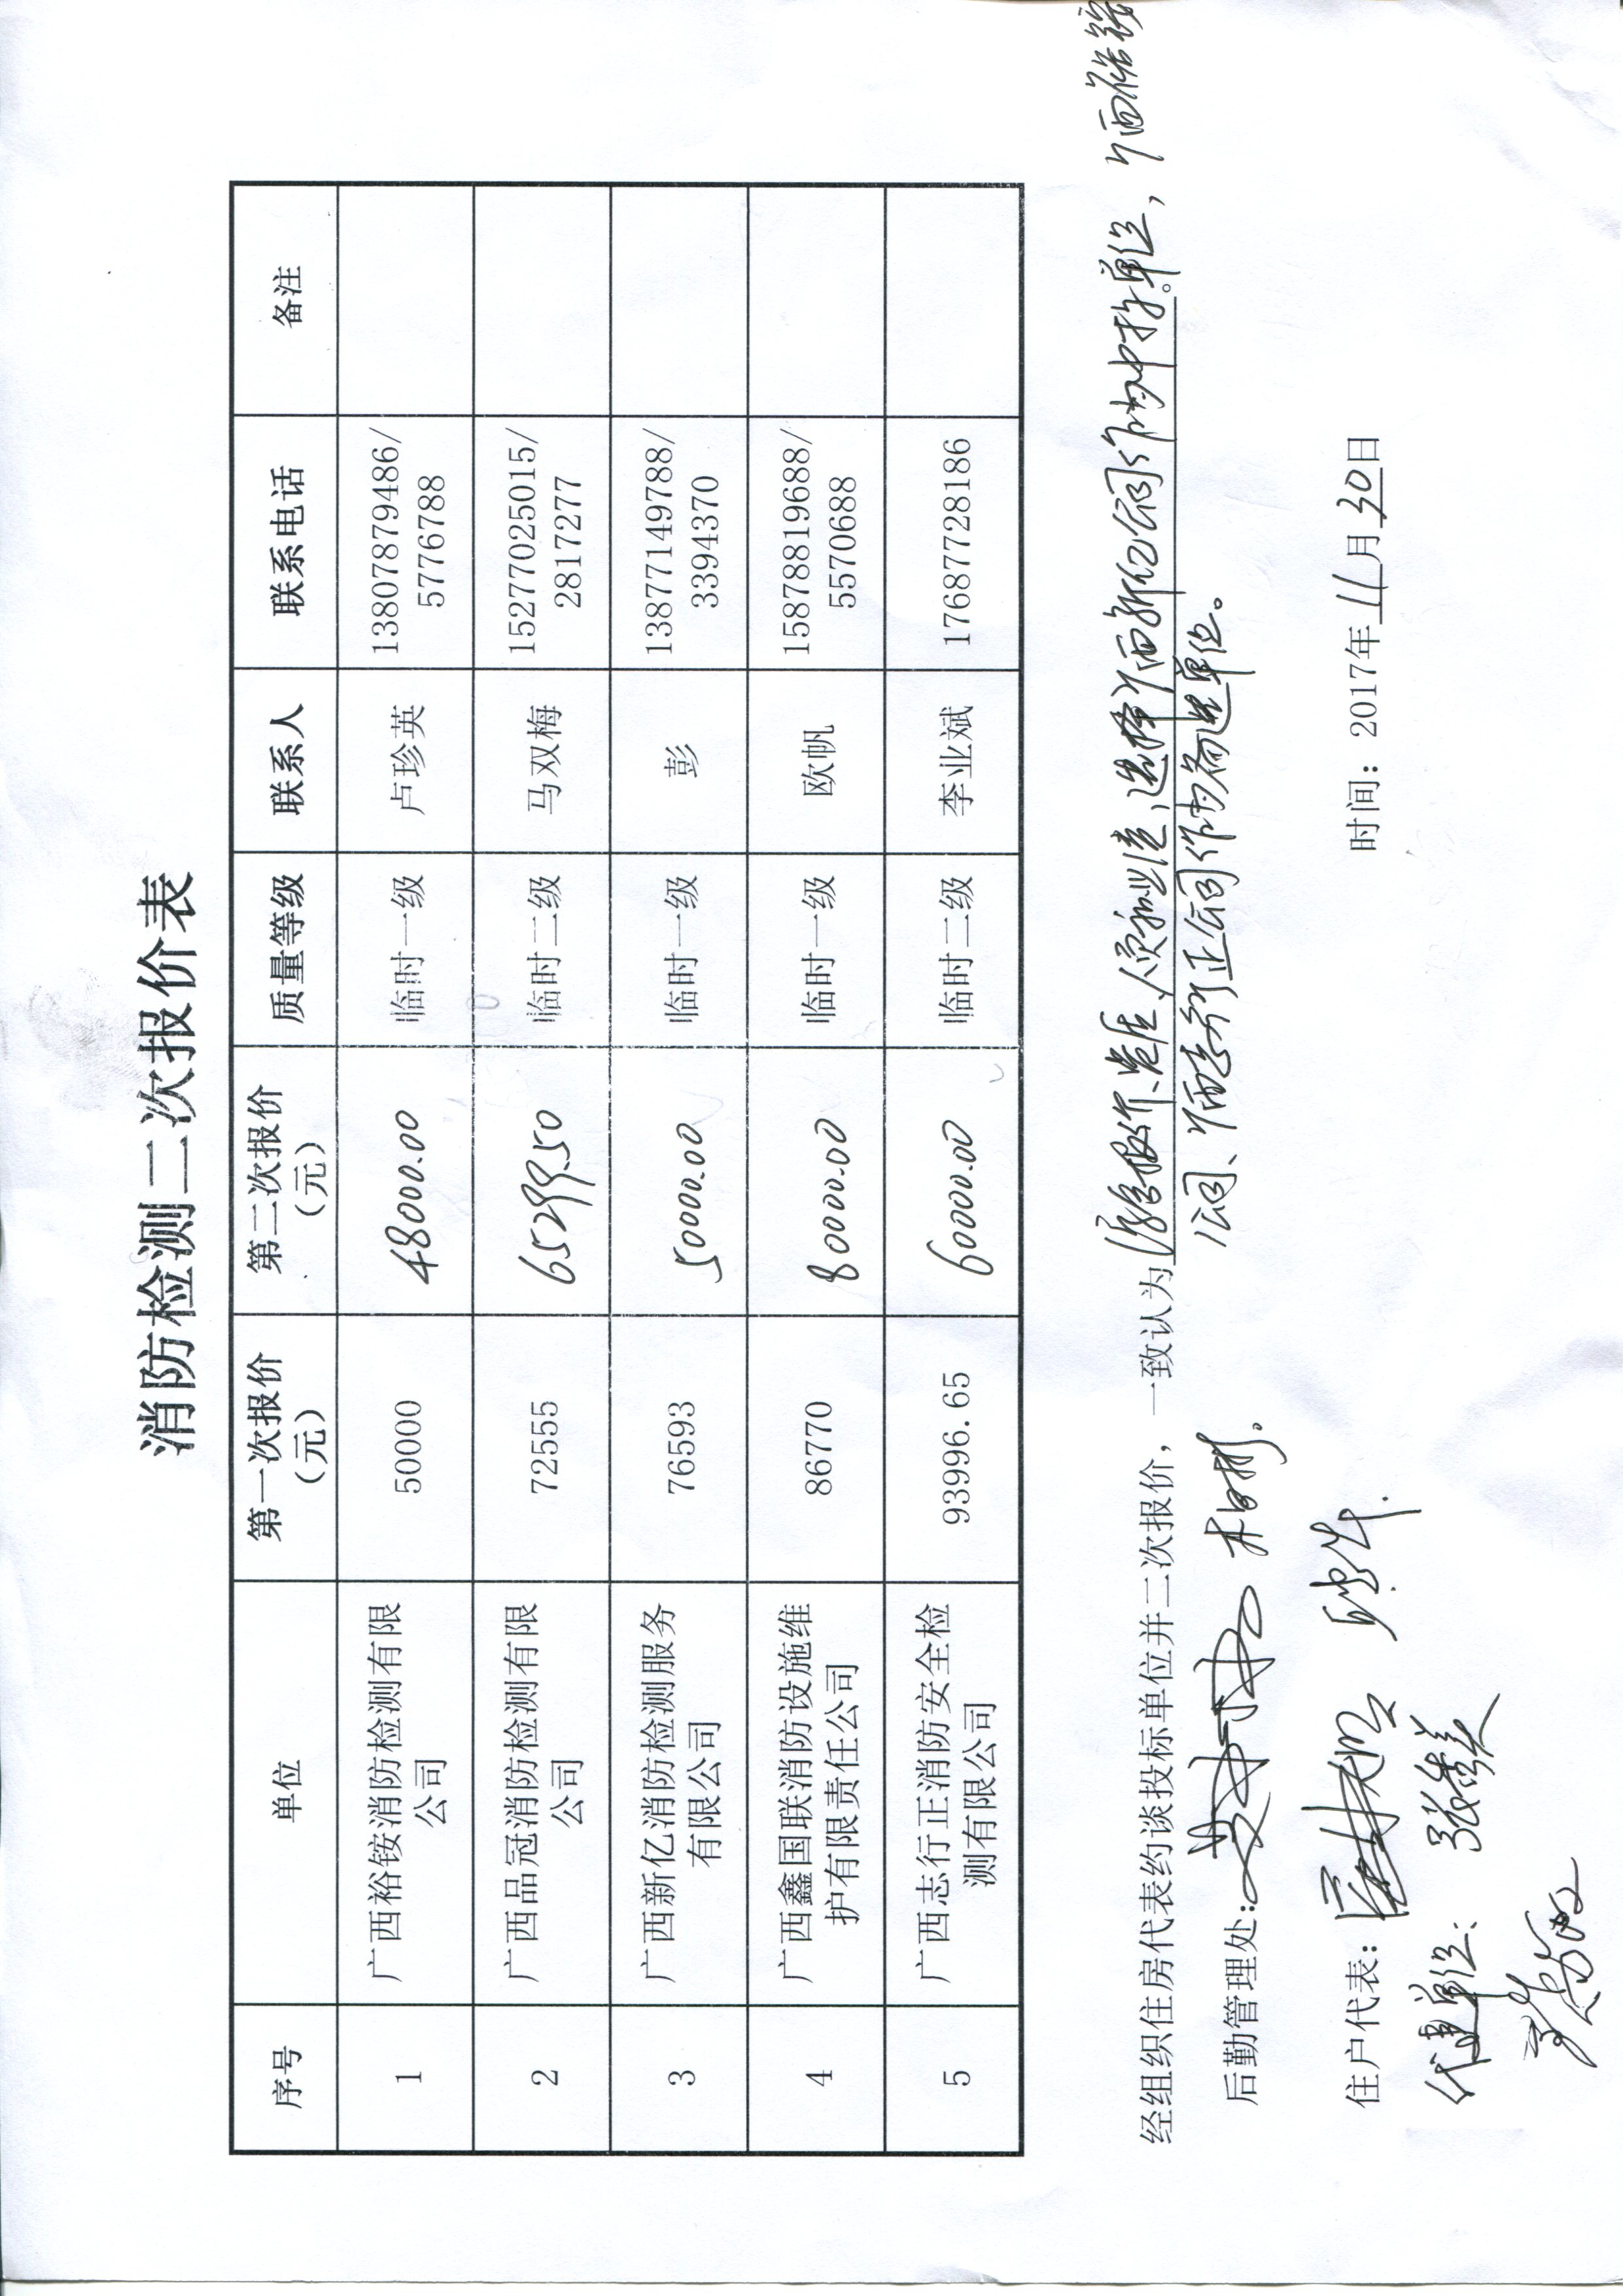 消防检测二次报价表
序号 单位 第一次报价（元） 第二次报价（元） 质量等级 联系人 联系电话 备注
1 广西裕铵消防检测有限公司 50000 48000.00 临时一级 卢珍英 13807879486/5776788
2 广西品冠消防检测有限公司 72555 65299.50 临时二级 马双梅 15277025015/2817277
3 广西新亿消防检测服务有限公司 76593 50000.00 临时一级 彭 13877149788/3394370
4 广西鑫国联消防设施维护有限责任公司 86770 80000.00 临时一级 欧帆 15878819688/5570688
5 广西志行正消防安全检测有限公司 93996.65 60000.00 临时二级 李业斌 17687728186
经组织住房代表约谈投标单位并二次报价，一致认为综合报价、资质、人员和业绩，选择广西新亿公司作为中标单位，广西裕铵
公司、广西志行正公司作为备选单位。
后勤管理处：
住户代表： 时间：2017年11月30日
代建单位：